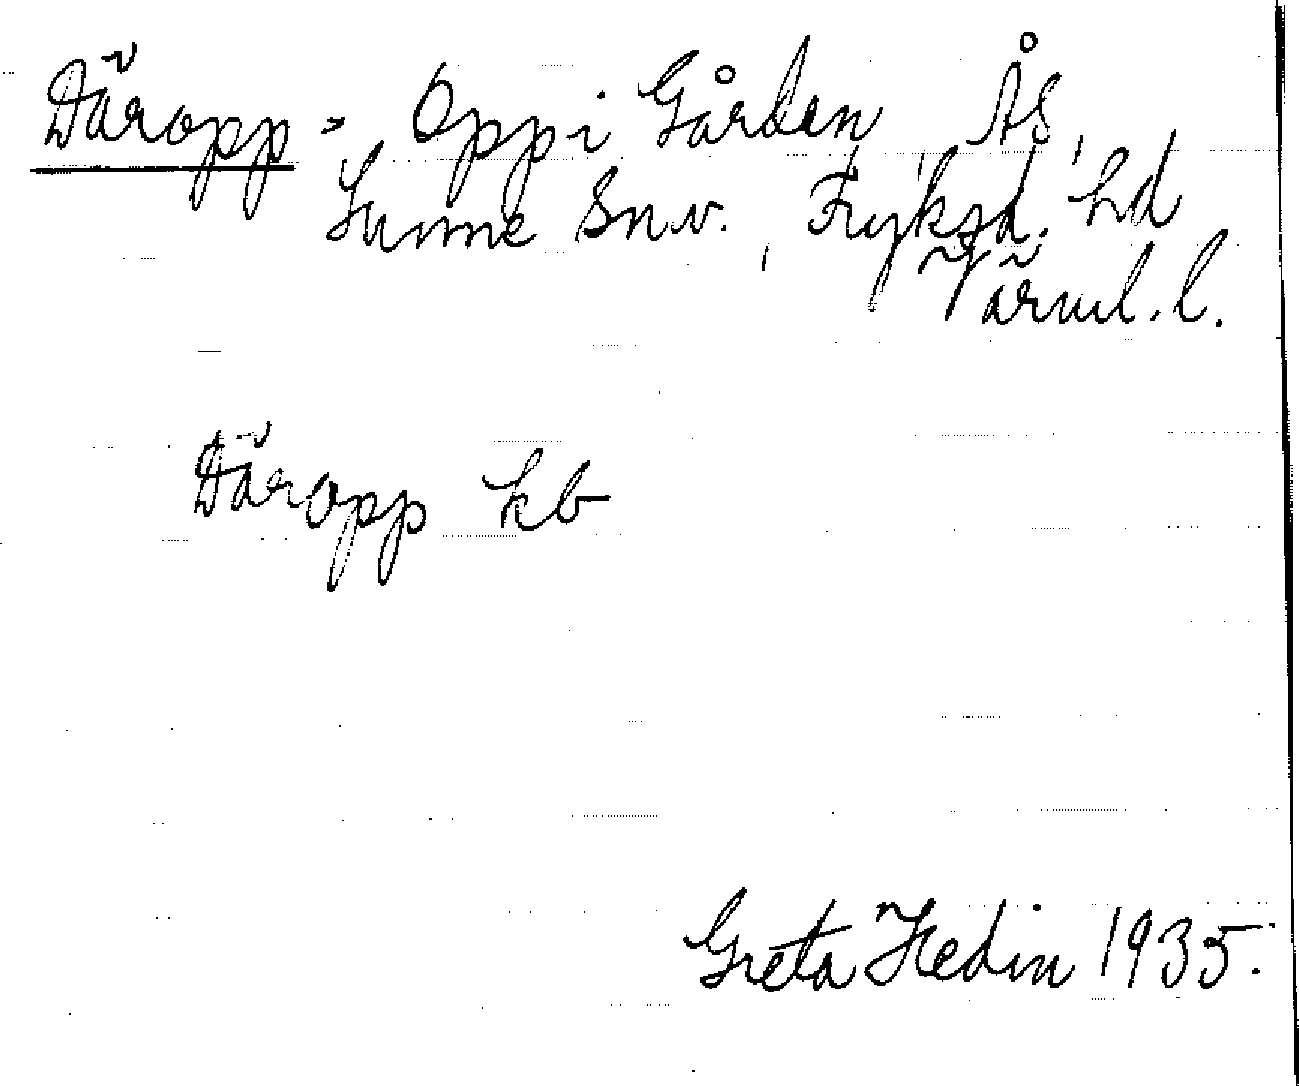 Däropp = Oppi Gården, Ås,
Sunne Sn.v., Fryksd. hd
Värml. l.
Däropp kb
Greta Hedin 1935.